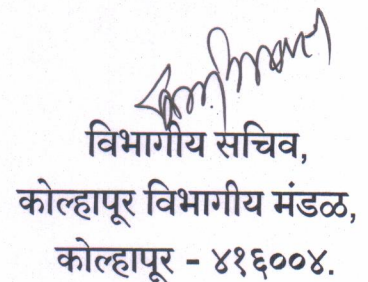 विभागीय सचिव,
कोल्हापूर विभागीय मंडळ,
कोल्हापूर - ४१६००४.